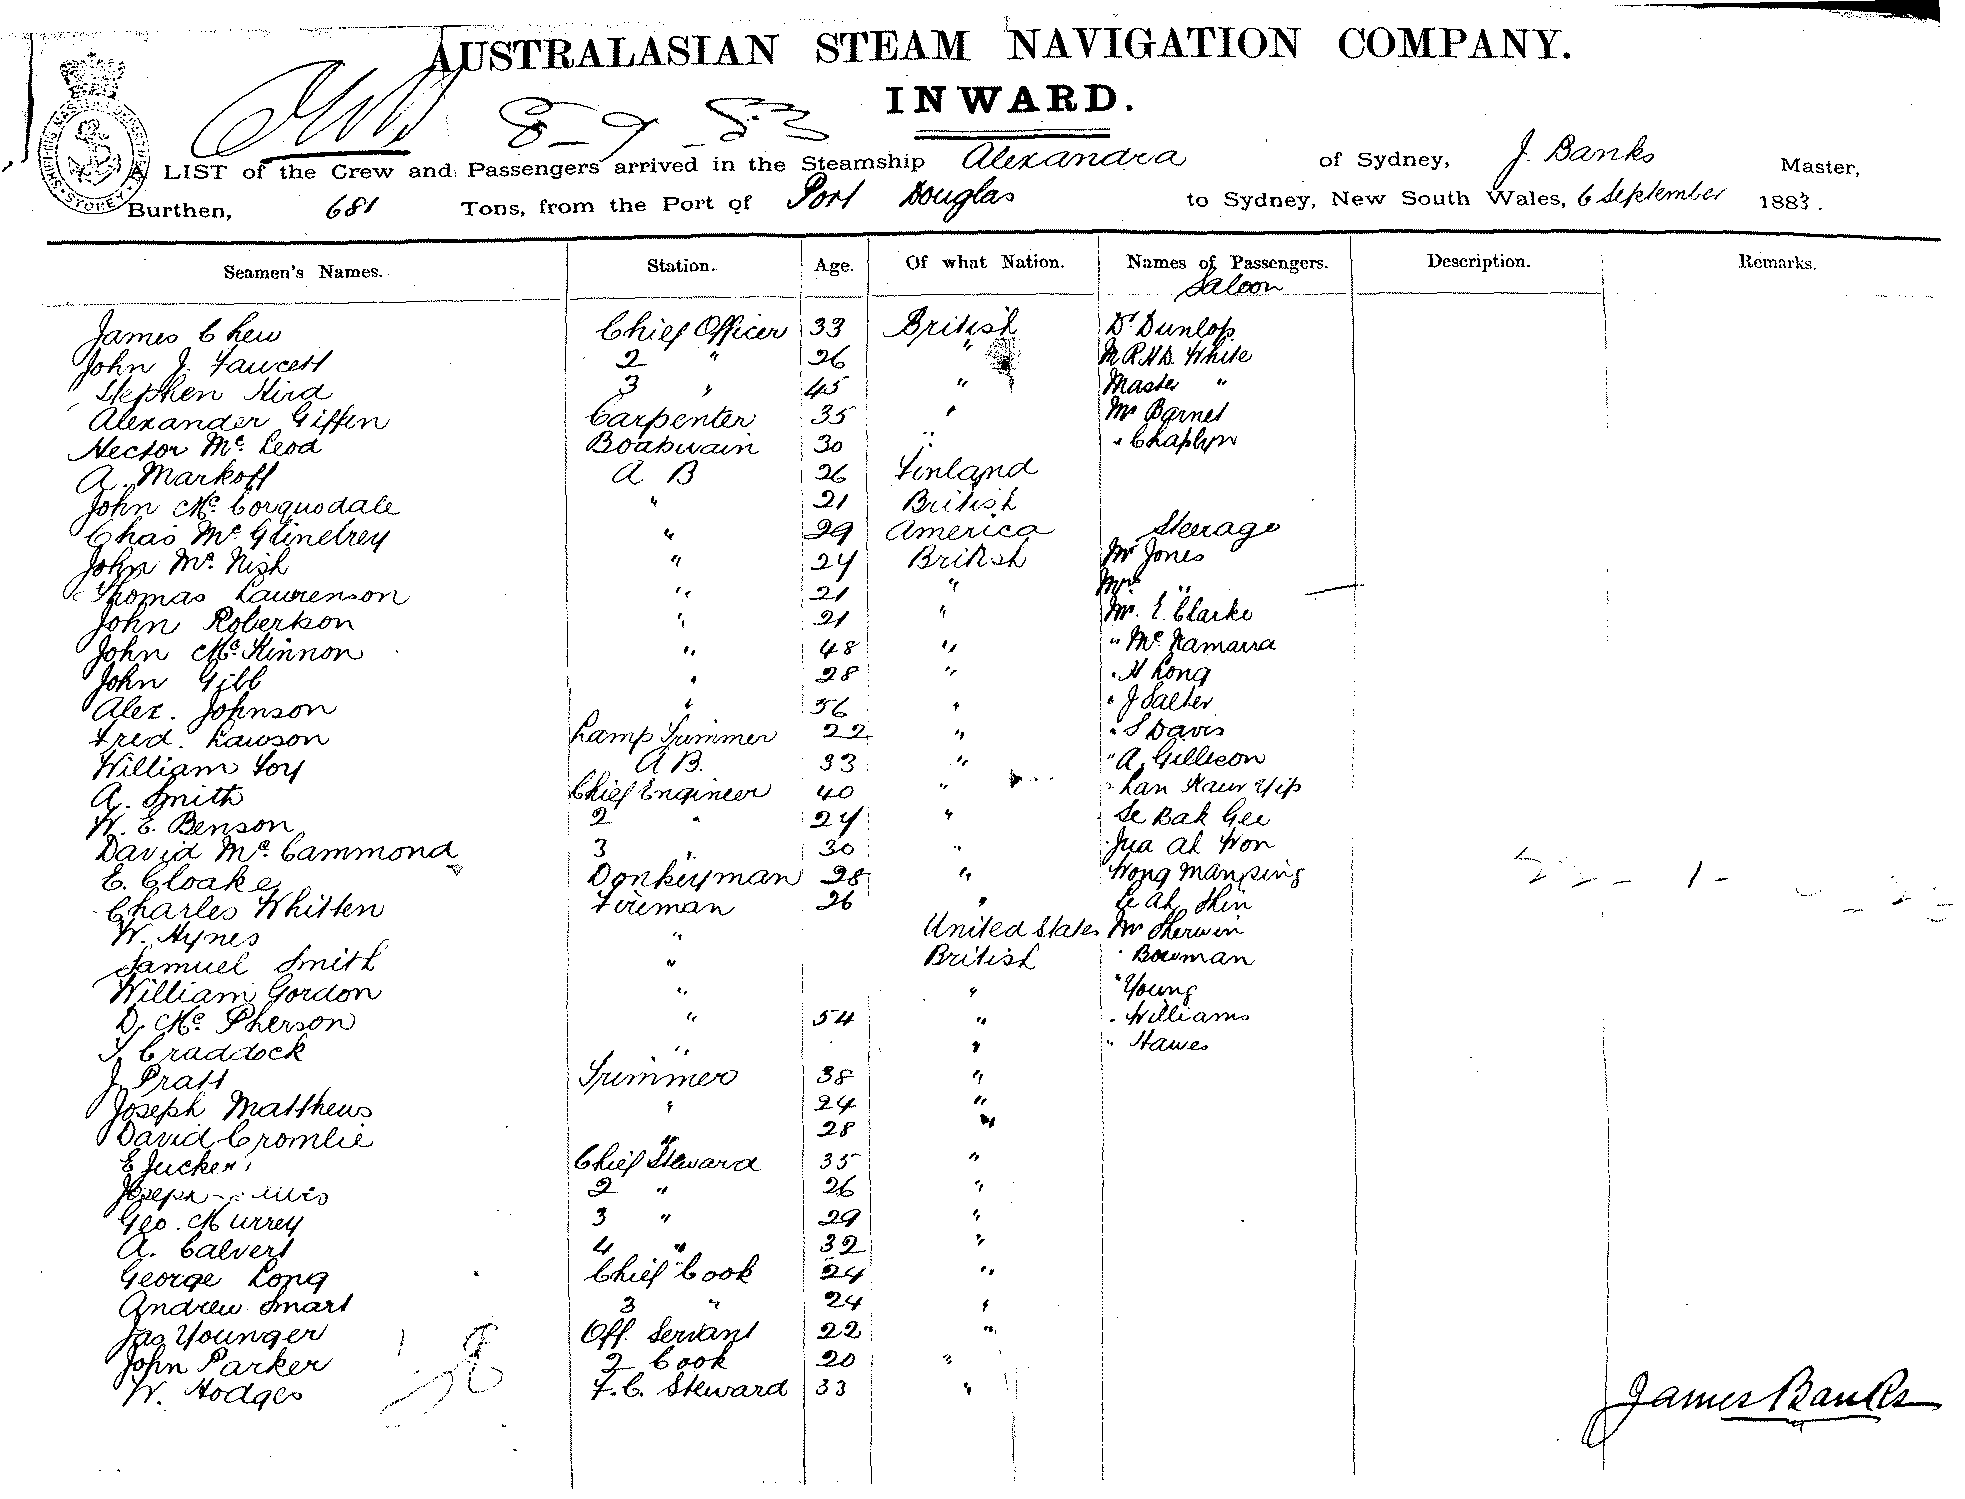 AUSTRALASIAN STEAM NAVIGATION COMPANY.
INWARD.
A LIST of the Crew and Passengers arrived in the Steamship Alexandra of Sydney, J. Banks Master,
Burthen, 681 Tons, from the Port of Port Douglas to Sydney, New South Wales, 6 September 1883.
Seamen's Names. Station. Age. Of what Nation. Names of Passengers. Description. Remarks.
Saloon
James Chew Chief Officer 33 British Dr Dunlop
John J. Fawcett 2 " 26 " White
Stephen Hird 3 " 45 " Master "
Alexander Giffin Carpenter 35 " Mr Barnet
Hector Mc Leod Boatswain 30 " " Chaplyn
A. Markoff A B 26 Finland
John Mc Corquodale " 21 British
Chas Mc " 29 America Steerage
John Mc Nish " 24 British Mr Jones
Thomas Laurenson " 21 " Mrs "
John Robertson " 21 " Mr. E. Clarke
John Mc Kinnon " 48 " " Mc Namarra
John Gibb " 28 " " H Long
Alex. Johnson " 56 " " J Salter
Fred. Lawson Lamp Trimmer 22 " " S Davis
William Foy A B. 33 " " A. Gillison
A. Smith Chief Engineer 40 " " Lan Yip
W. E. Benson 2 " 24 " Se Bak Gee
David Mc Cammond 3 " 30 " Jua Ah Won
E. Cloake Donkeyman 28 " Wong Manping
Charles Whitten Fireman 26 " Le Ah Shin
W. Hynes " United States Mr Sherwin
Samuel Smith " British " Bowman
William Gordon " " " Young
D. Mc Pherson " 54 " " Williams
T. Craddock " " " Hawes
J. Pratt Trimmer 38 "
Joseph Matthews " 24 "
David Cromlie " 28 "
E Tucker Chief Steward 35 "
Joseph 2 " 26 "
Geo. Murrey 3 " 29 "
A. Calvert 4 " 32 "
George Long Chief Cook 24 "
Andrew Smart 3 " 24 "
Jas Younger Off. Servant 22 "
John Parker 2 Cook 20 "
W. Hodges F. C. Steward 33 "
James Banks